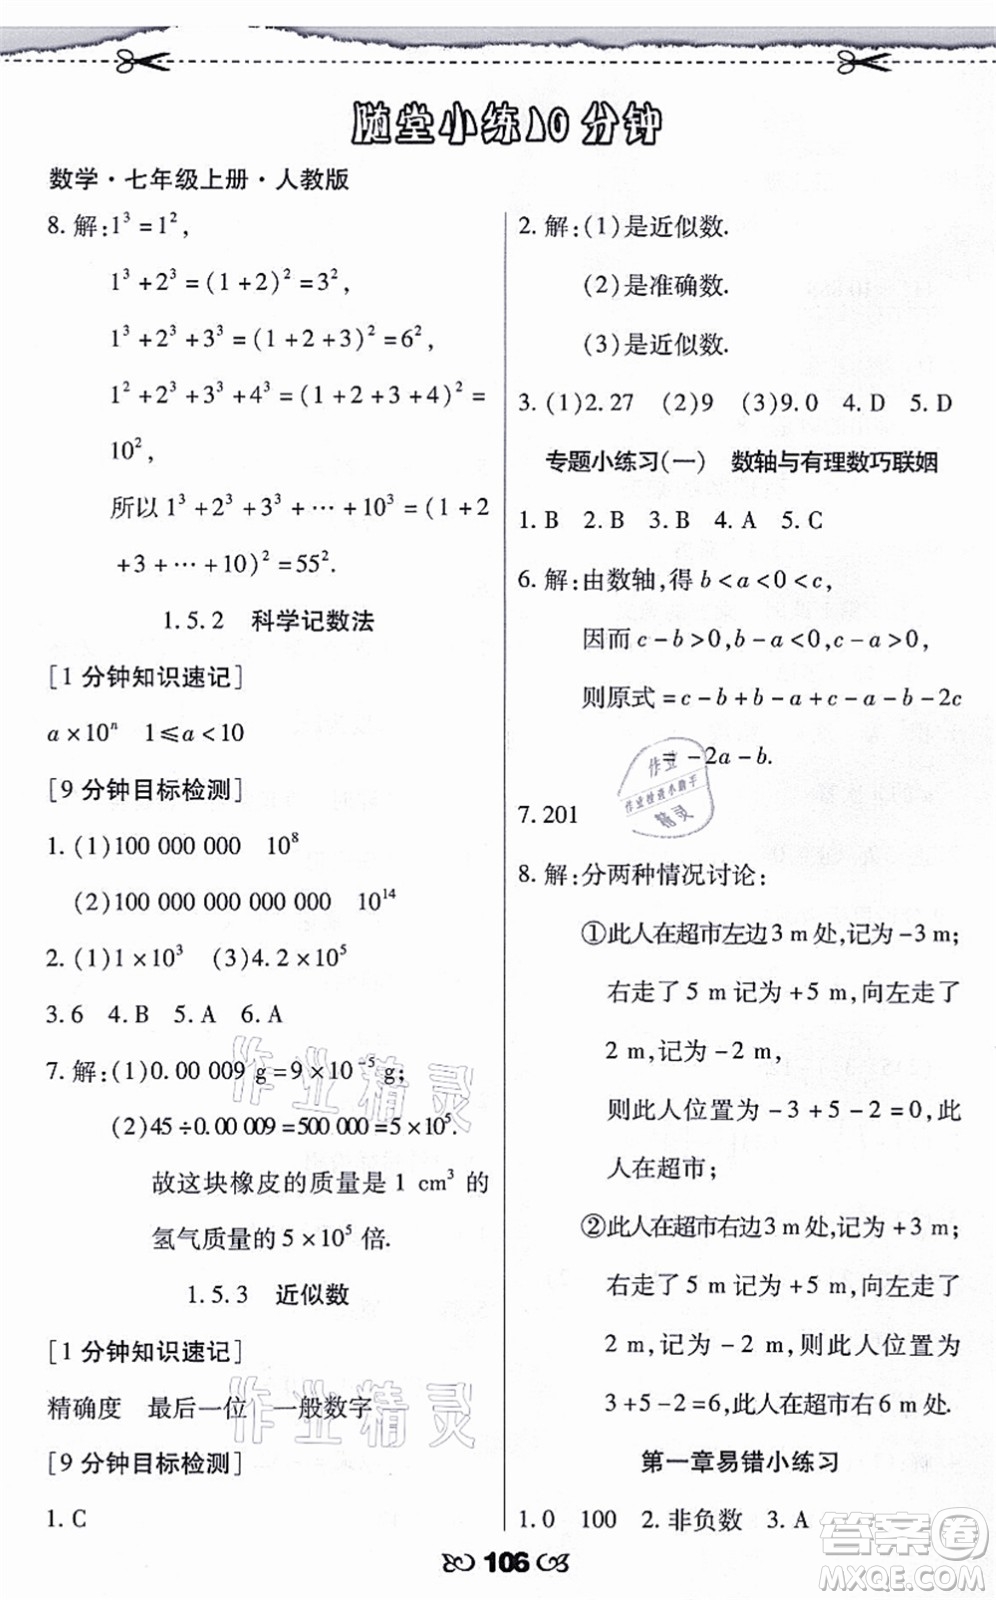 随堂小练10分钟
数学·七年级上册·人教版
8. 解:1³=1²,
1³+2³=(1+2)²=3²,
1³+2³+3³=(1+2+3)²=6²,
1²+2³+3³+4³=(1+2+3+4)²=
10²,
所以1³+2³+3³+⋯+10³=(1+2
+3+⋯+10)²=55².
1.5.2 科学记数法
[1分钟知识速记]
a×10ⁿ 1≤a<10
[9分钟目标检测]
1. (1)100 000 000 10⁸
(2)100 000 000 000 000 10¹⁴
2. (1)1×10³ (3)4.2×10⁵
3.6 4.B 5.A 6.A
7. 解:(1)0.00 009 g=9×10⁻⁵ g;
(2)45÷0.00 009=500 000=5×10⁵.
故这块橡皮的质量是1 cm³的
氢气质量的5×10⁵倍.
1.5.3 近似数
[1分钟知识速记]
精确度 最后一位 一般数字
[9分钟目标检测]
1. C
2. 解:(1)是近似数.
(2)是准确数.
(3)是近似数.
3. (1)2.27 (2)9 (3)9.0 4.D 5.D
专题小练习(一) 数轴与有理数巧联姻
1.B 2.B 3.B 4.A 5.C
6. 解:由数轴,得b<a<0<c,
因而c-b>0,b-a<0,c-a>0,
则原式=c-b+b-a+c-a-b-2c
=-2a-b.
7.201
8. 解:分两种情况讨论:
①此人在超市左边3 m处,记为-3 m;
右走了5 m记为+5 m,向左走了
2 m,记为-2 m,
则此人位置为-3+5-2=0,此
人在超市;
②此人在超市右边3 m处,记为+3 m;
右走了5 m记为+5 m,向左走了
2 m,记为-2 m,则此人位置为
3+5-2=6,此人在超市右6 m处.
第一章易错小练习
1.0 100 2.非负数 3.A
106
作业
作业检查小助手
精灵
作业精灵
作业精灵
答案圈
MXQE.COM